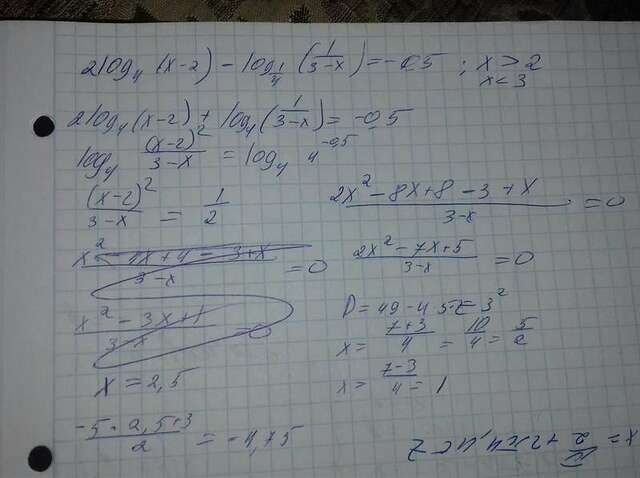 2log₄(x-2) - log_{1/4}(1/(3-x)) = -0,5 ; x > 2
x < 3
2log₄(x-2) + log₄(1/(3-x)) = -0,5
log₄ (x-2)²/(3-x) = log₄ 4^{-0,5}
(x-2)²/(3-x) = 1/2
(x² - 4x + 4 - 3+x)/(3-x) = 0
(x² - 3x + 1)/(3-x) = 0
x = 2,5
(-5 · 2,5+3)/2 = -4,75
(2x² - 8x + 8 - 3 + x)/(3-x) = 0
(2x² - 7x + 5)/(3-x) = 0
x = (7+3)/4 = 10/4 = 5/2
x = (7-3)/4 = 1